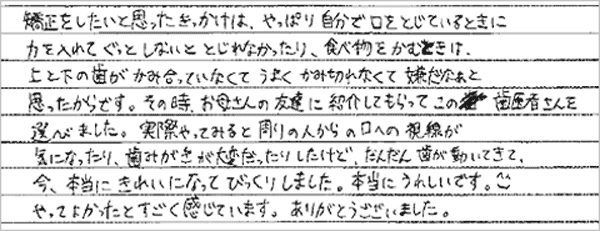 矯正をしたいと思ったきっかけは、やっぱり自分で口をとじているときに
力を入れてぐっとしないととじれなかったり、食べ物をかむときは、
上と下の歯がかみ合っていなくてうまくかみ切れなくて嫌だなぁと
思ったからです。その時、お母さんの友達に紹介してもらってこの歯医者さんを
選べました。実際やってみると周りの人からの口への視線が
気になったり、歯みがきが大変だったりしたけど、だんだん歯が動いてきて、
今、本当にきれいになってびっくりしました。本当にうれしいです。
やってよかったとすごく感じています。ありがとうございました。